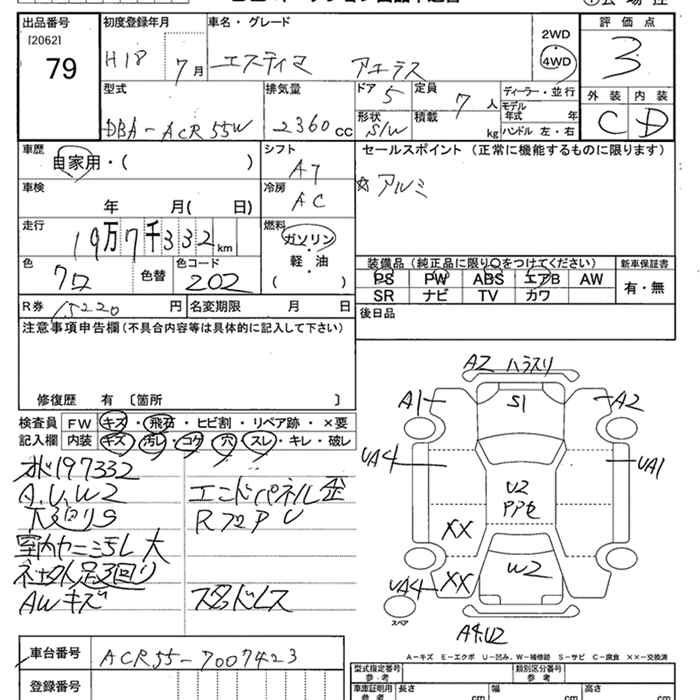 出品番号 [2062] 79
初度登録年月 H18 年 7月
車名・グレード エスティマ アエラス
2WD
4WD
評価点 3
外装 C
内装 D
型式 DBA-ACR55W
排気量 2360cc
ドア 5
形状 S/W
定員 7人
積載 kg
ディーラー・並行
モデル年式 年
ハンドル 左・右
車歴 自家用・( )
車検 年 月( 日)
走行 19万7千332km
色 クロ
色替
色コード 202
シフト AT
冷房 AC
燃料 ガソリン
軽・油
( )
R券 15220円
名変期限 月 日
セールスポイント (正常に機能するものに限ります)
☆アルミ
装備品 (純正品に限り○をつけてください)
PS PW ABS エアB AW
SR ナビ TV カワ
新車保証書
有・無
後日品
注意事項申告欄 (不具合内容等は具体的に記入して下さい)
修復歴 有 〔箇所 〕
検査員記入欄
FW キズ・飛石・ヒビ割・リペア跡・×要
内装 キズ・汚レ・コゲ・穴・スレ・キレ・破レ
197332
A.U.W2
室内ヤニ汚レ大
AWキズ
エンドパネル歪
スタッドレス
A2 ハラスリ
A1
S1
A2
UA4
UA1
U2
XX
UA4
XX
W2
A4.U2
スペア
A-キズ E-エクボ U-凹み W-補修跡 S-サビ C-腐食 XX-交換済
車台番号 ACR55-7007423
登録番号
型式指定番号 参考
類別区分番号 参考
車庫証明用 参考
長さ cm
幅 cm
高さ cm